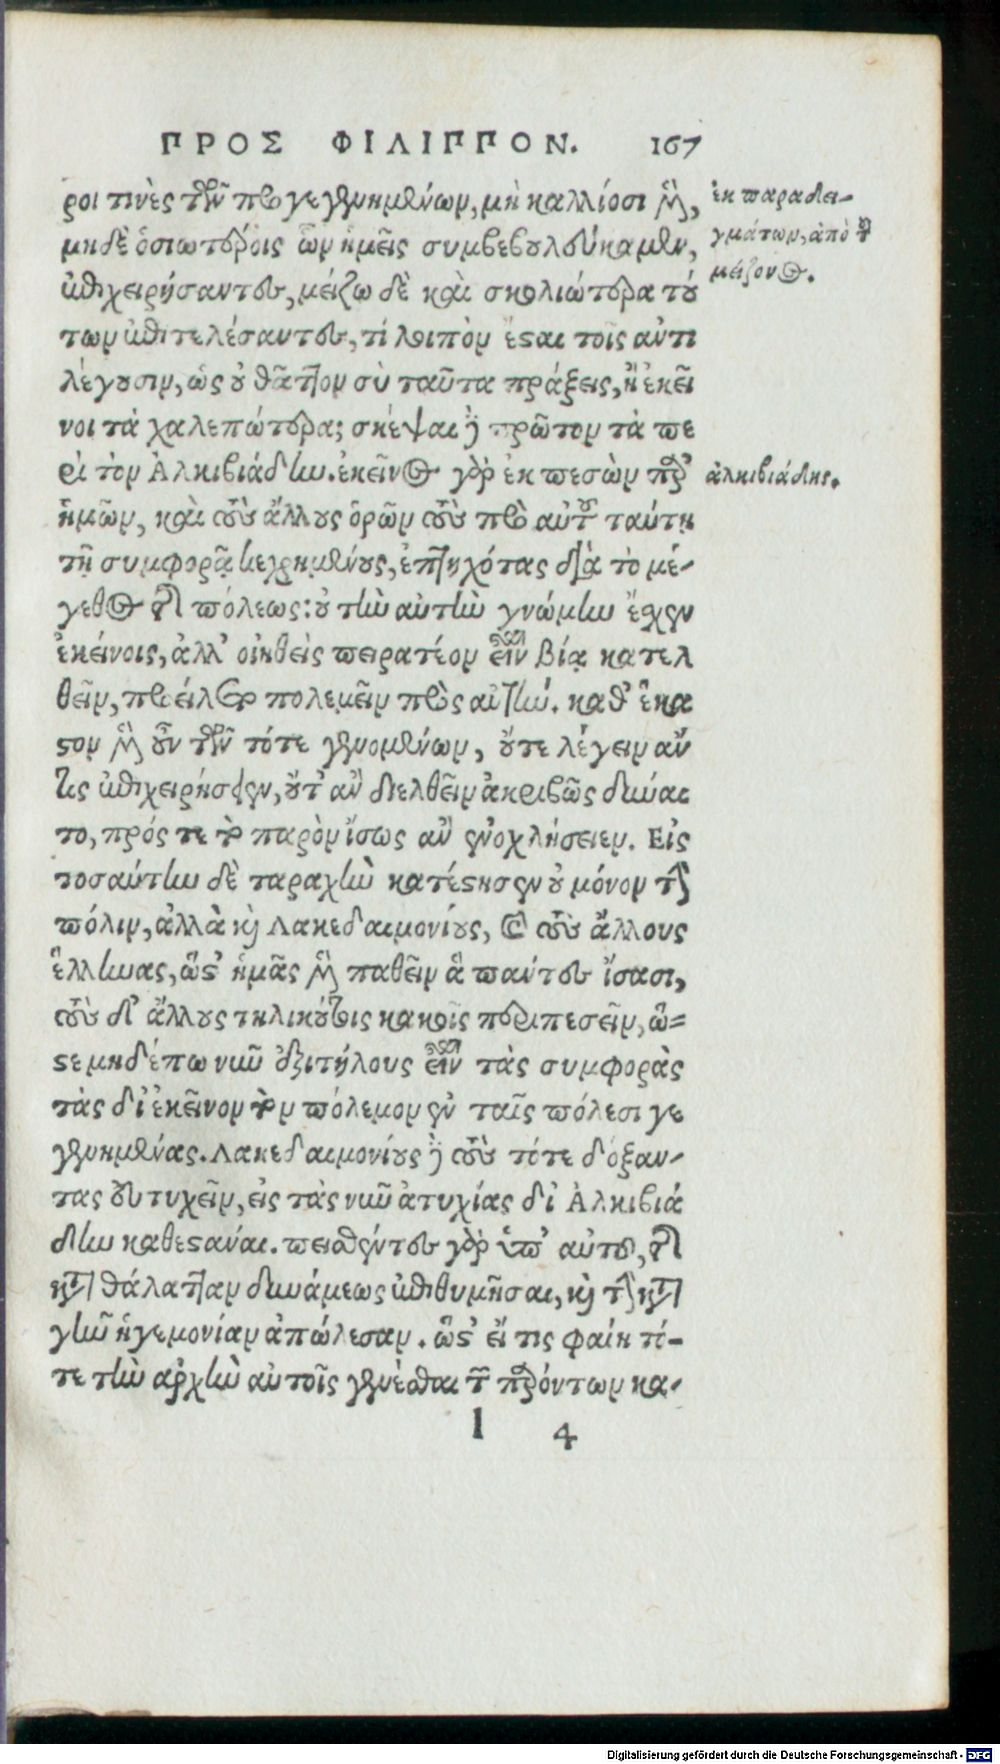 ΠΡΟΣ ΦΙΛΙΠΠΟΝ. 167
ροι τινὲς τῶν προγεγενημένων, μὴ καλλίοσι μὲν,
μηδὲ ὁσιωτέροις ὧν ἡμεῖς συμβεβουλεύκαμεν,
ἐπιχειρήσαντες, μείζω δὲ καὶ σκολιώτερα τού
των ἐπιτελέσαντες, τί λοιπὸν ἔσται τοῖς ἀντι
λέγουσιν, ὡς οὐ θᾶττον σὺ ταῦτα πράξεις, ἢ ἐκεῖ
νοι τὰ χαλεπώτερα; σκέψαι δὲ πρῶτον τὰ πε
ρὶ τὸν Ἀλκιβιάδην. ἐκεῖνος γὰρ ἐκπεσὼν παρ'
ἡμῶν, καὶ τοὺς ἄλλους ὁρῶν τοὺς πρὸ αὐτοῦ ταύτῃ
τῇ συμφορᾷ κεχρημένους, ἐπτηχότας διὰ τὸ μέ-
γεθος τῆς πόλεως: οὐ τὴν αὐτὴν γνώμην ἔχεν
ἐκείνοις, ἀλλ' οἰηθεὶς πειρατέον εἶναι βίᾳ κατελ
θεῖν, προείλετο πολεμεῖν πρὸς αὐτήν. καθ' ἕκα
στον μὲν οὖν τῶν τότε γενομένων, οὔτε λέγειν ἄν
τις ἐπιχειρήσειεν, οὔτ' ἂν διελθεῖν ἀκριβῶς δύναι
το, πρός τε τὸ παρὸν ἴσως ἂν ἐνοχλήσειεν. Εἰς
τοσαύτην δὲ ταραχὴν κατέστησεν οὐ μόνον τὴν
πόλιν, ἀλλὰ καὶ Λακεδαιμονίους, καὶ τοὺς ἄλλους
ἕλληνας, ὥστ' ἡμᾶς μὲν παθεῖν ἃ πάντες ἴσασι,
τοὺς δ' ἄλλους τηλικούτοις κακοῖς περιπεσεῖν, ὥ=
στε μηδέπω νῦν ἐξιτήλους εἶναι τὰς συμφορὰς
τὰς δι' ἐκεῖνον τὸν πόλεμον ἐν ταῖς πόλεσι γε
γενημένας. Λακεδαιμονίους δὲ τοὺς τότε δόξαν-
τας εὐτυχεῖν, εἰς τὰς νῦν ἀτυχίας δι' Ἀλκιβιά
δην καθεστάναι. πεισθέντες γὰρ ὑπ' αὐτοῦ, τῆς
κατὰ θάλατταν δυνάμεως ἐπιθυμῆσαι, καὶ τὴν κατὰ
γῆν ἡγεμονίαν ἀπώλεσαν. ὥστ' εἴ τις φαίη τό-
τε τὴν ἀρχὴν αὐτοῖς γενέσθαι τῶν παρόντων κα-
l 4
ἐκ παραδει-
γμάτων, ἀπὸ τοῦ
μείζονος.
ἀλκιβιάδης.
Digitalisierung gefördert durch die Deutsche Forschungsgemeinschaft - DFG